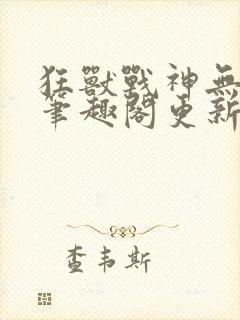 狂獸戰神無
筆趣閣更新
查韦斯